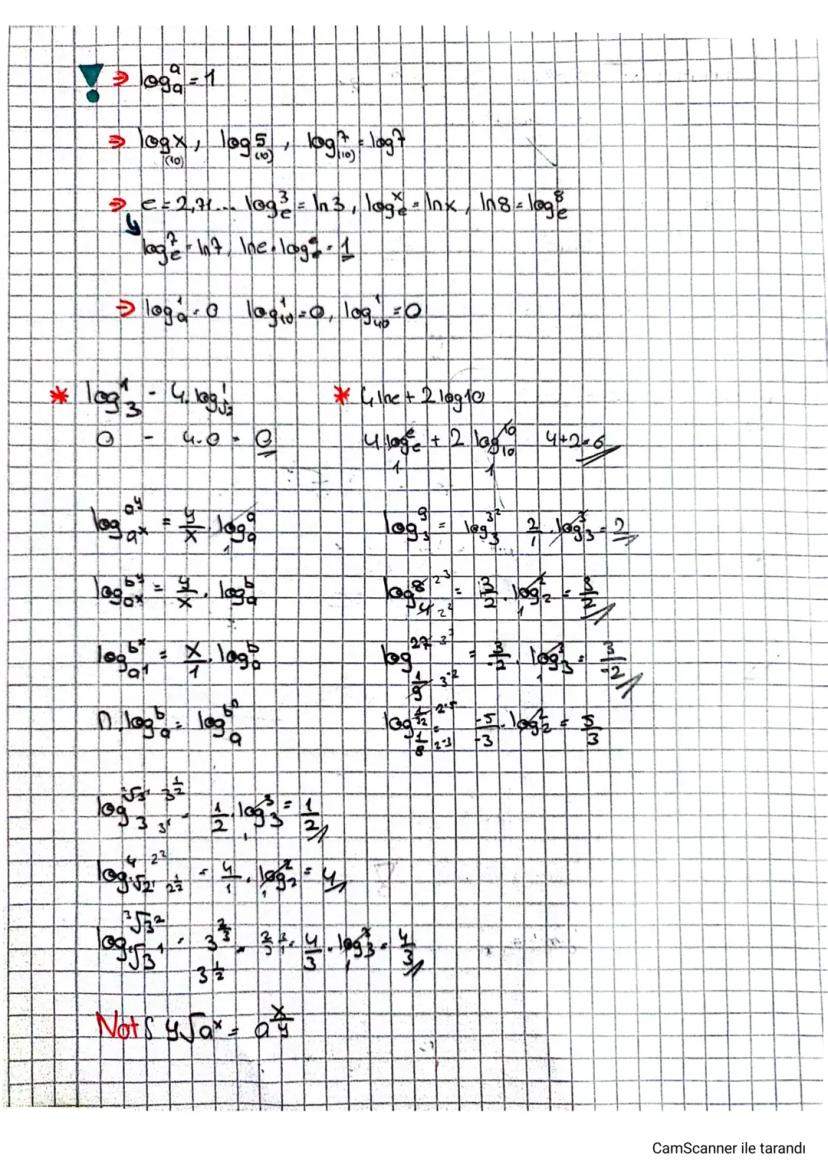 ! ⇒ log_a^a = 1
⇒ log x_(10), log_(10)^5, log_(10)^7 = log 7
⇒ e = 2,71... log_e^3 = ln 3, log_e^x = ln x, ln 8 = log_e^8
log_e^7 = ln 7, ln e = log_e^e = 1
⇒ log_a^1 = 0 log_10^1 = 0, log_40^1 = 0
* log_3^1 - 4.log_√2^1
0 - 4.0 = 0
* 4 ln e + 2 log 10
4 log_e^e + 2 log_10^10 4+2=6
1 1
log_(a^x)^(a^y) = y/x . log_a^a 1
log_(a^x)^(b^y) = y/x . log_a^b
log_(a^1)^(b^x) = x/1 . log_a^b
n.log_a^b = log_a^(b^n)
log_3^9 = log_3^(3^2) 2/1 . log_3^3 = 2
log_4^8 2^3 2^2 = 3/2 . log_2^2 = 3/2 1
log_(1/9)^27 3^3 3^-2 = 3/-2 . log_3^3 = 3/-2 1
log_(1/8)^(1/32) 2^-5 2^-3 = -5/-3 . log_2^2 = 5/3
log_3^√3 3^(1/2) 3^1 = 1/2 . log_3^3 = 1/2 1
log_√2^4 2^2 2^(1/2) = 4/1 . log_2^2 = 4 1
log_(√3^1)^(³√3^2) = 3^(2/3) 3^(1/2) = 4/3 . log_3^3 = 4/3 1
Not: y√a^x = a^(x/y)
CamScanner ile tarandı